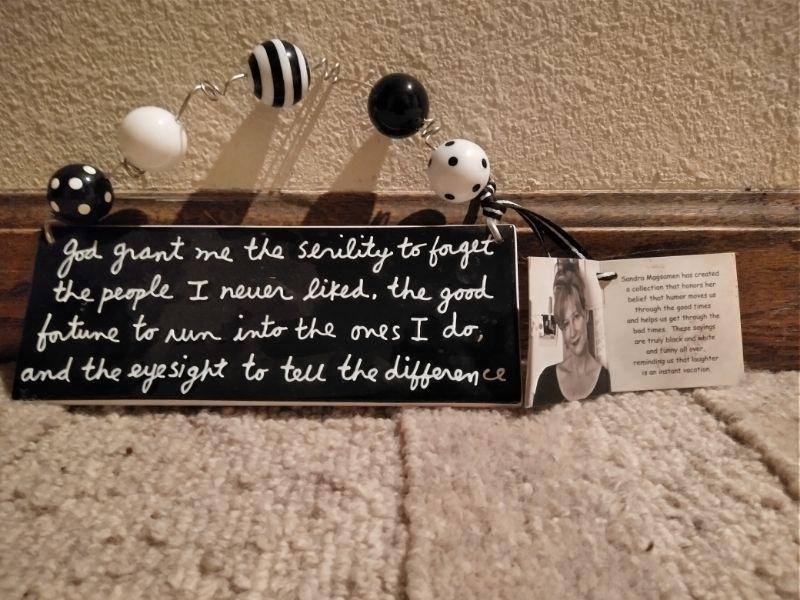 God grant me the senility to forget
the people I never liked, the good
fortune to run into the ones I do,
and the eyesight to tell the difference
Sandra Magsamen has created
a collection that honors her
belief that humor moves us
through the good times
and helps us get through the
bad times. These sayings
are truly black and white
and funny all over,
reminding us that laughter
is an instant vacation.